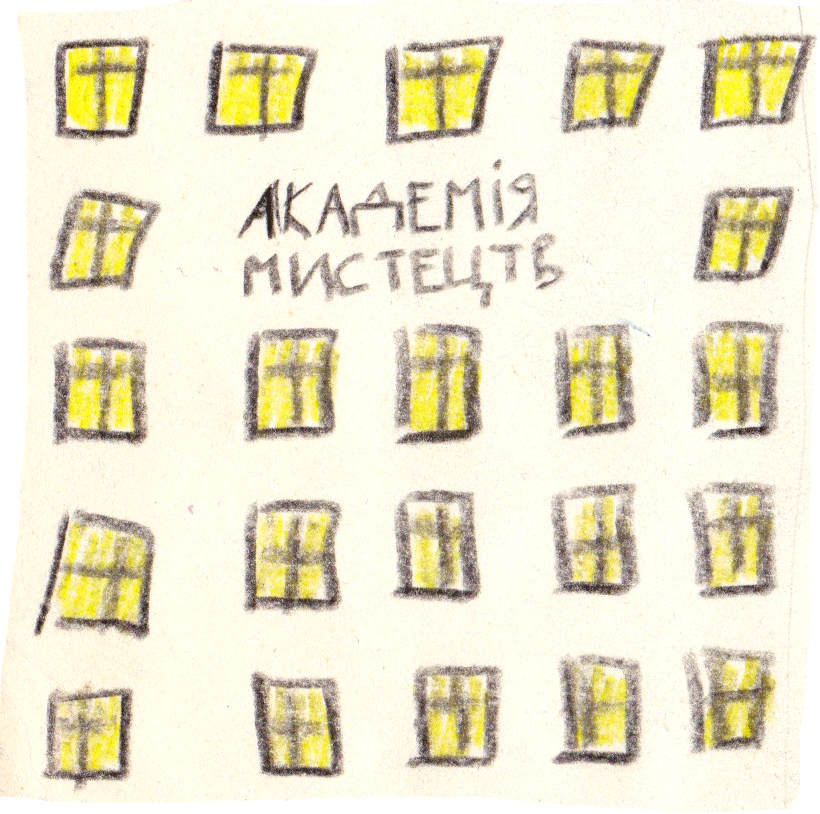 АКАДЕМІЯ
МИСТЕЦТВ